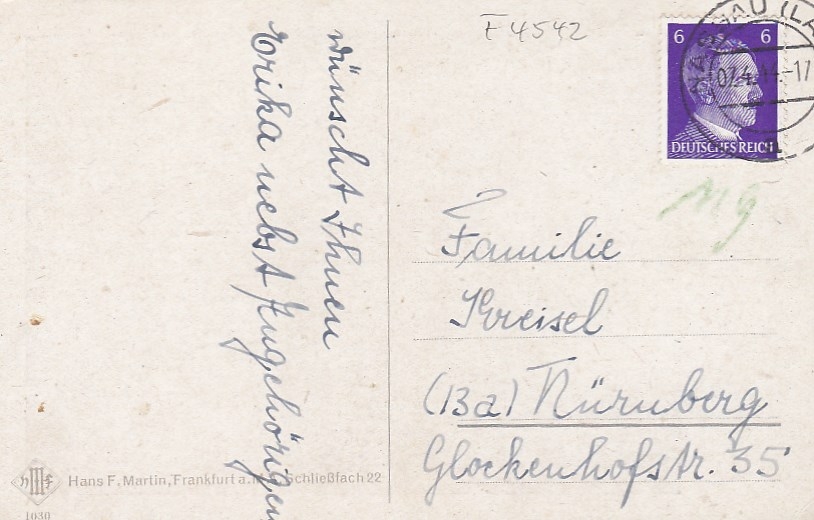 wünscht Ihnen
Erika nebst Angehörigen
F 4542
6 6
DEUTSCHES REICH
07.4.44.-17
Familie
Kreisel
(13a) Nürnberg
Glockenhofstr. 35
Hans F. Martin, Frankfurt a. Schließfach 22
1030